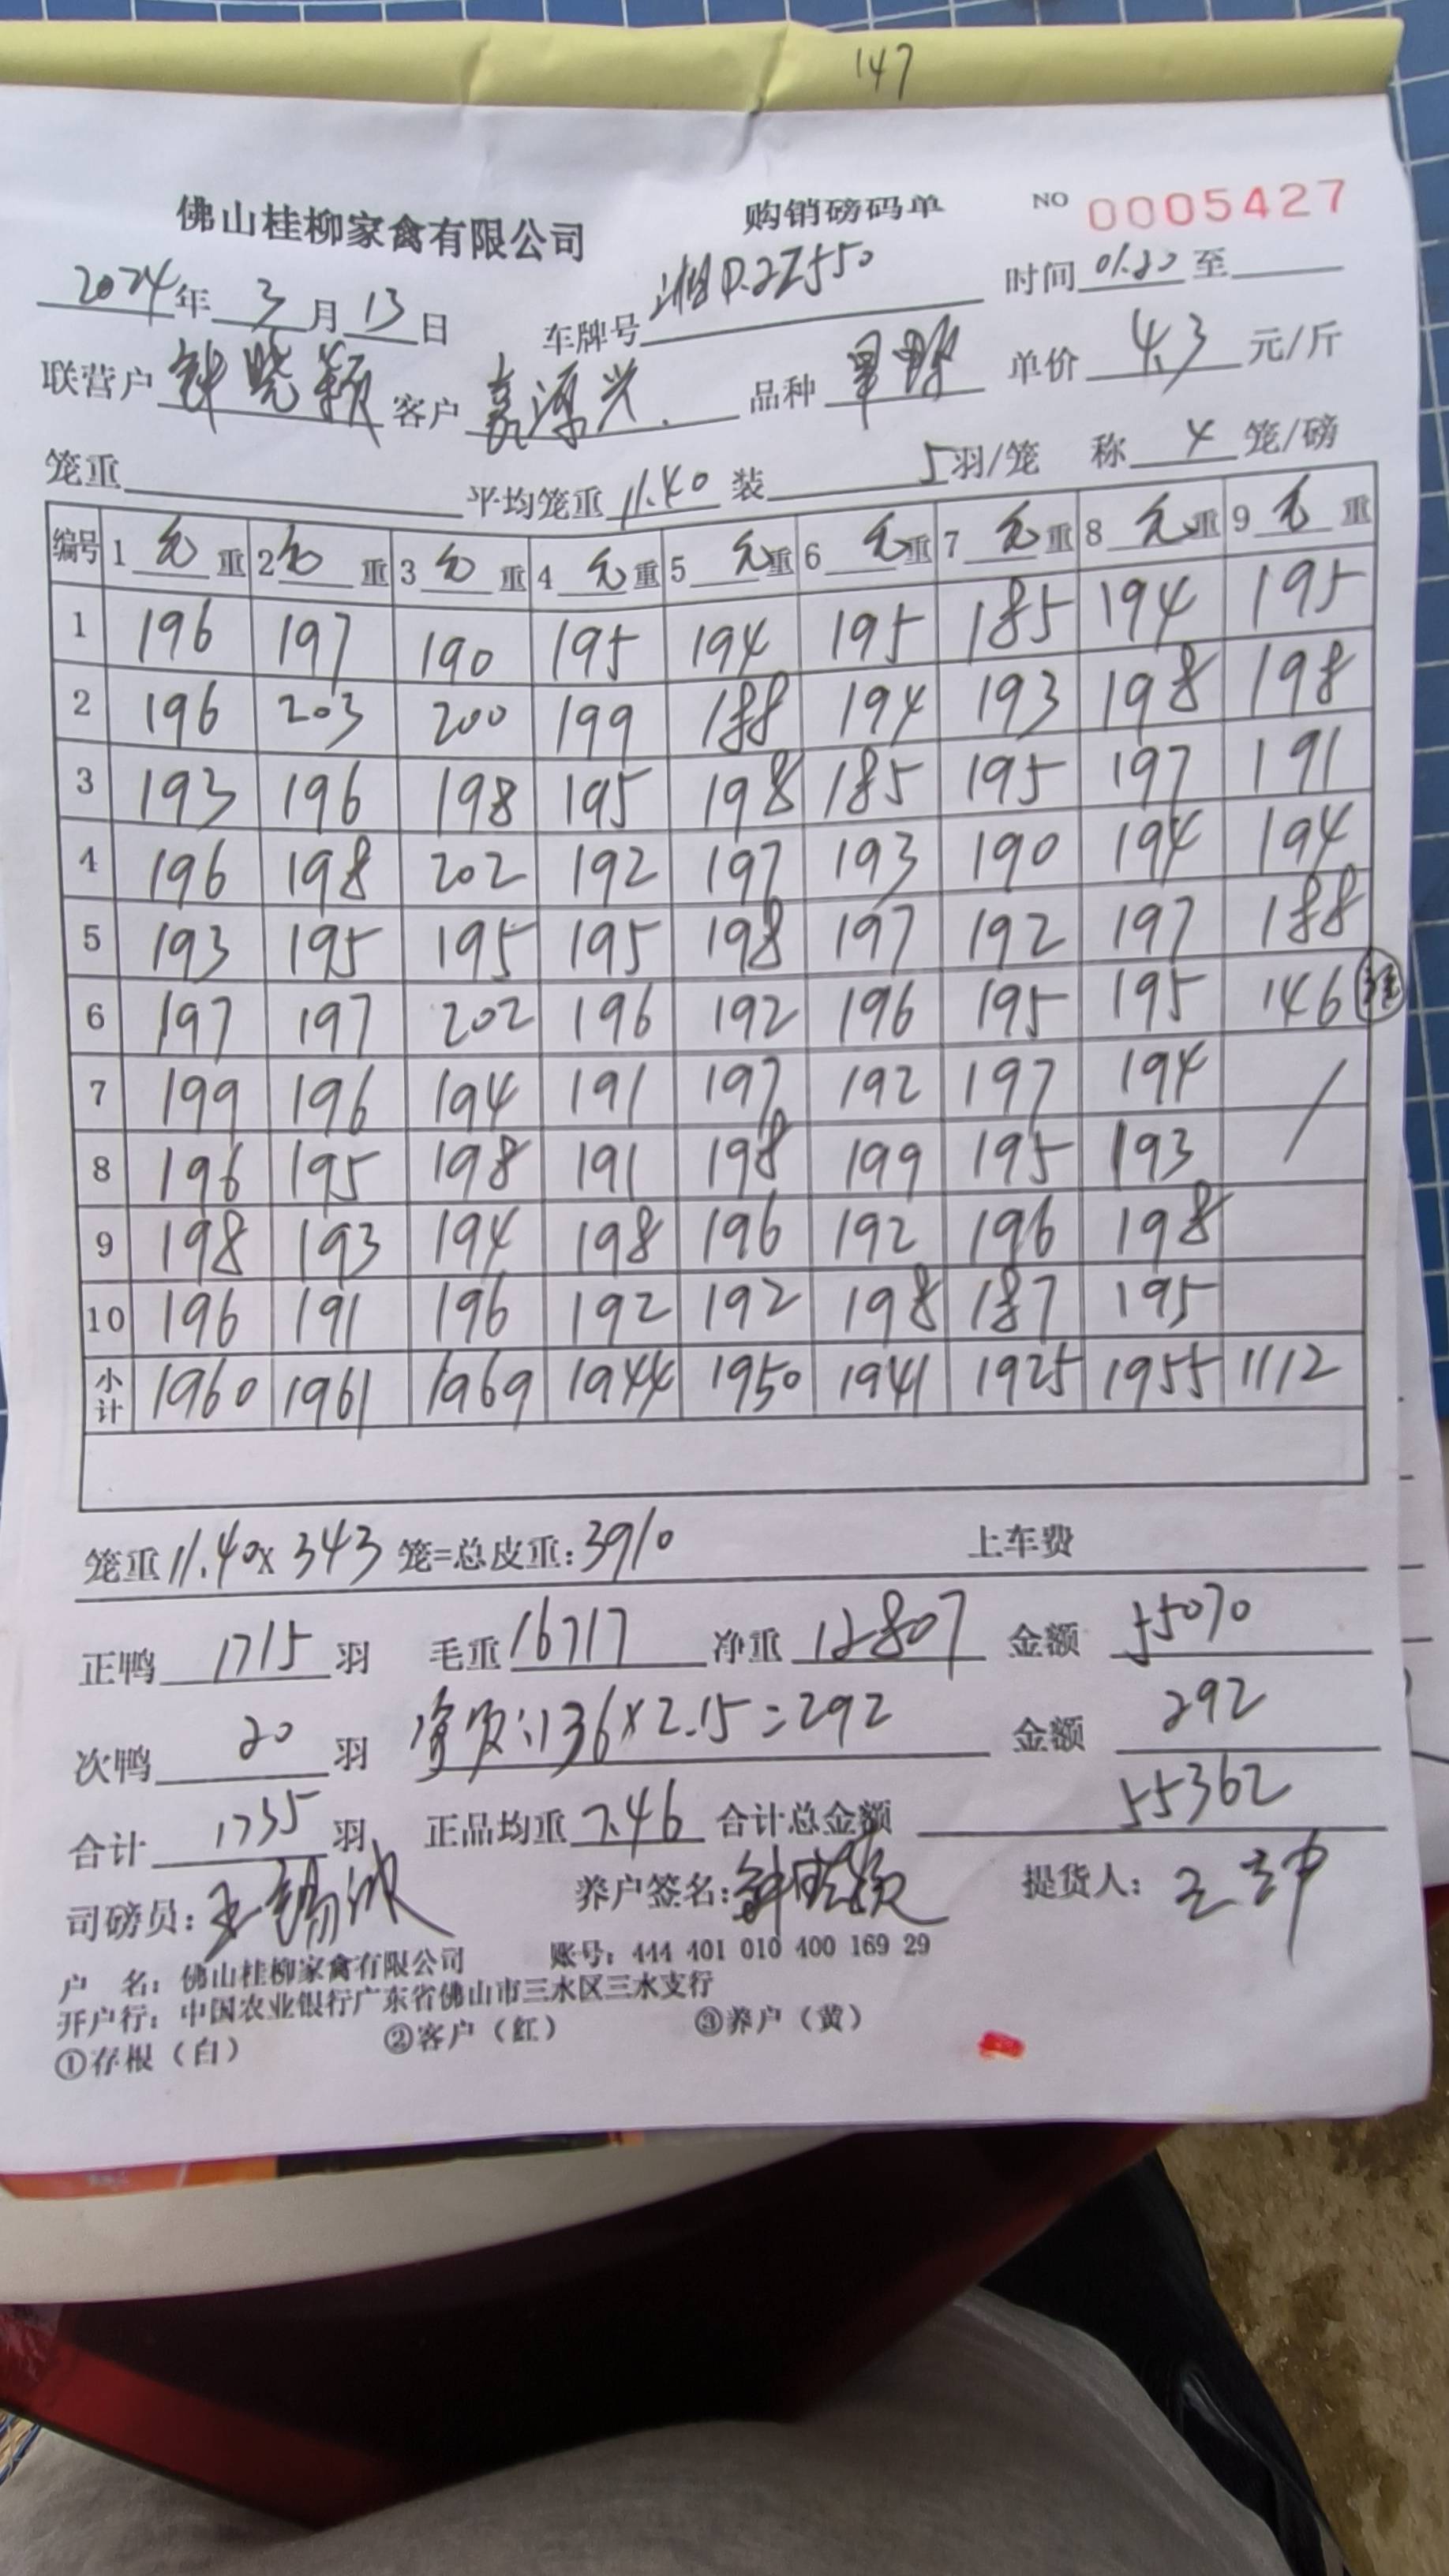 147
佛山桂柳家禽有限公司 购销磅码单 NO 0005427
2024年3月13日 车牌号 湘D.2Z550 时间 01.20 至
联营户 钟晓颖 客户 嘉源兴. 品种 单价 4.3 元/斤
笼重 平均笼重 11.40 装 5羽/笼 称 4 笼/磅
编号 1 毛 重 2 毛 重 3 毛 重 4 毛 重 5 毛 重 6 毛 重 7 毛 重 8 毛 重 9 毛 重
1 196 197 190 195 194 195 185 194 195
2 196 203 200 199 188 194 193 198 198
3 193 196 198 195 198 185 195 197 191
4 196 198 202 192 197 193 190 194 194
5 193 195 195 195 198 197 192 197 188
6 197 197 202 196 192 196 195 195 146
7 199 196 194 191 197 192 197 194 /
8 196 195 198 191 198 199 195 193
9 198 193 194 198 196 192 196 198
10 196 191 196 192 192 198 187 195
小计 1960 1961 1969 1944 1950 1941 1925 1955 1112
笼重 11.40 x 343 笼=总皮重: 3910 上车费
正鸭 1715 羽 毛重 16717 净重 12807 金额 55070
次鸭 20 羽 :136×2.15=292 金额 292
合计 1735 羽 正品均重 7.46 合计总金额 55362
司磅员: 养户签名: 钟晓颖 提货人:
户 名: 佛山桂柳家禽有限公司 账号: 444 401 010 400 169 29
开户行: 中国农业银行广东省佛山市三水区三水支行
①存根（白） ②客户（红） ③养户（黄）